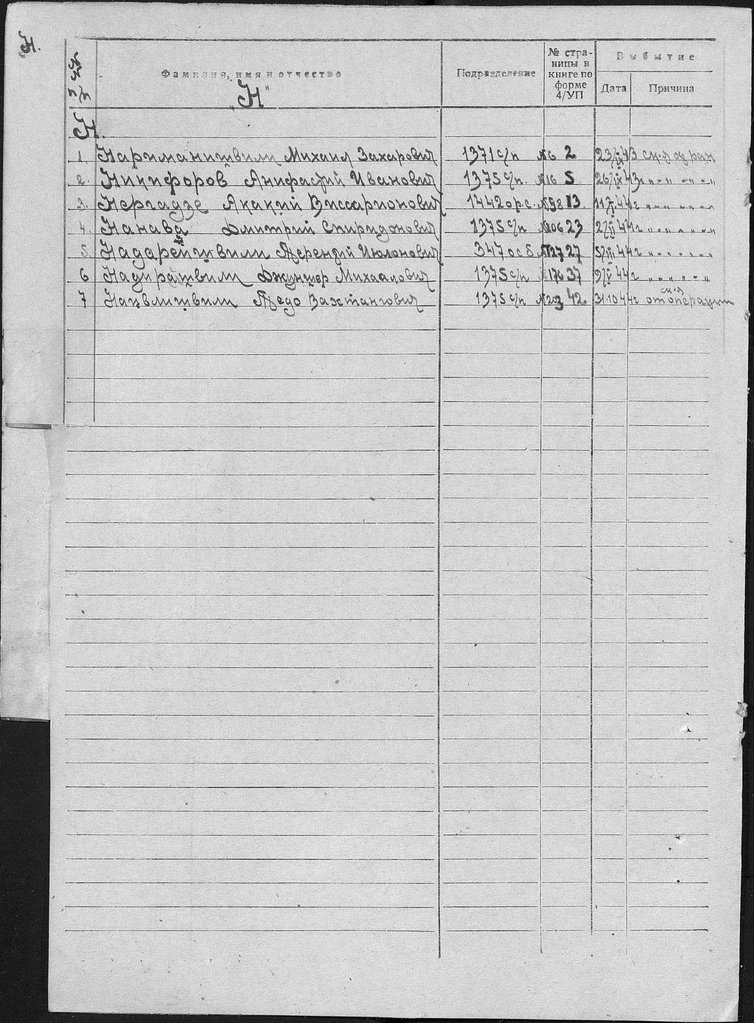 Н.
№№ п/п
Фамилия, имя и отчество
Подразделение
№ стра-
ницы в
книге по
форме
4/УП
Выбытие
Дата
Причина
„Н"
Н.
1. Нариманишвили Михаил Захарович 1371 с/п №6 2 43 ск-д от ран
2. Никифоров Анифастий Иванович 1375 с/п. №16 5 43 " " " "
3. Нергадзе Акакий Виссарионович 1442 арс №58 13 44г " " " "
4. Нанава Дмитрий Спиридонович 1375 с/п №106 23 44г " " " "
5 Надарейшвили Терентий Июлонович 347 осб №127 27 44г " " " "
6 Надирашвили Джуншер Михайлович 1375 с/п №176 37 44г " " " "
7 Нацвлишвили Тедо Вахтангович 1375 с/п №203 42 31-10 44г ск-д от операции